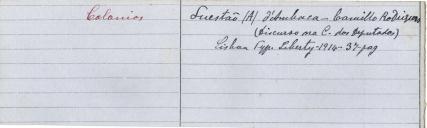 Colonias
Questão (A) d'Ambaca - Camillo Rodrigues
(Discurso na C. dos Deputados)
Lisboa Typ. Liberty - 1914 - 37 pag